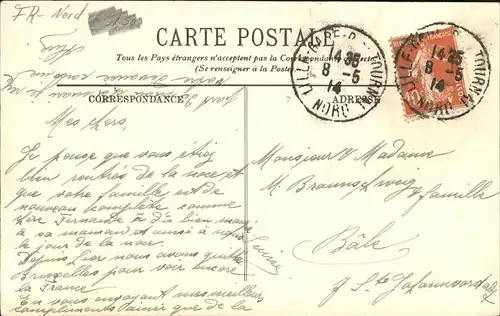 FR - Nord
CARTE POSTALE
Tous les Pays étrangers n'acceptent pas la Correspondance
(Se renseigner à la Poste)
CORRESPONDANCE
ADRESSE
LILLE-GARE TOURNAI
14 35
8 - 5
14
NORD
LILLE TOURNAI
14 35
8 - 5
14
NORD
Mes chers,
Je pense que vous étiez
bien rentrés de la noce et
que votre famille est de
nouveau complète comme
Fernande a dû bien
à sa maman et ainsi à
le jour de la noce.
Depuis hier nous avons quitté
Bruxelles pour voir encore
la France.
En vous envoyant mes meilleurs
compliments ainsi que de la
Monsieur & Madame
M. Braunschweig
& famille
Bâle
J. St. Johannvorstadt